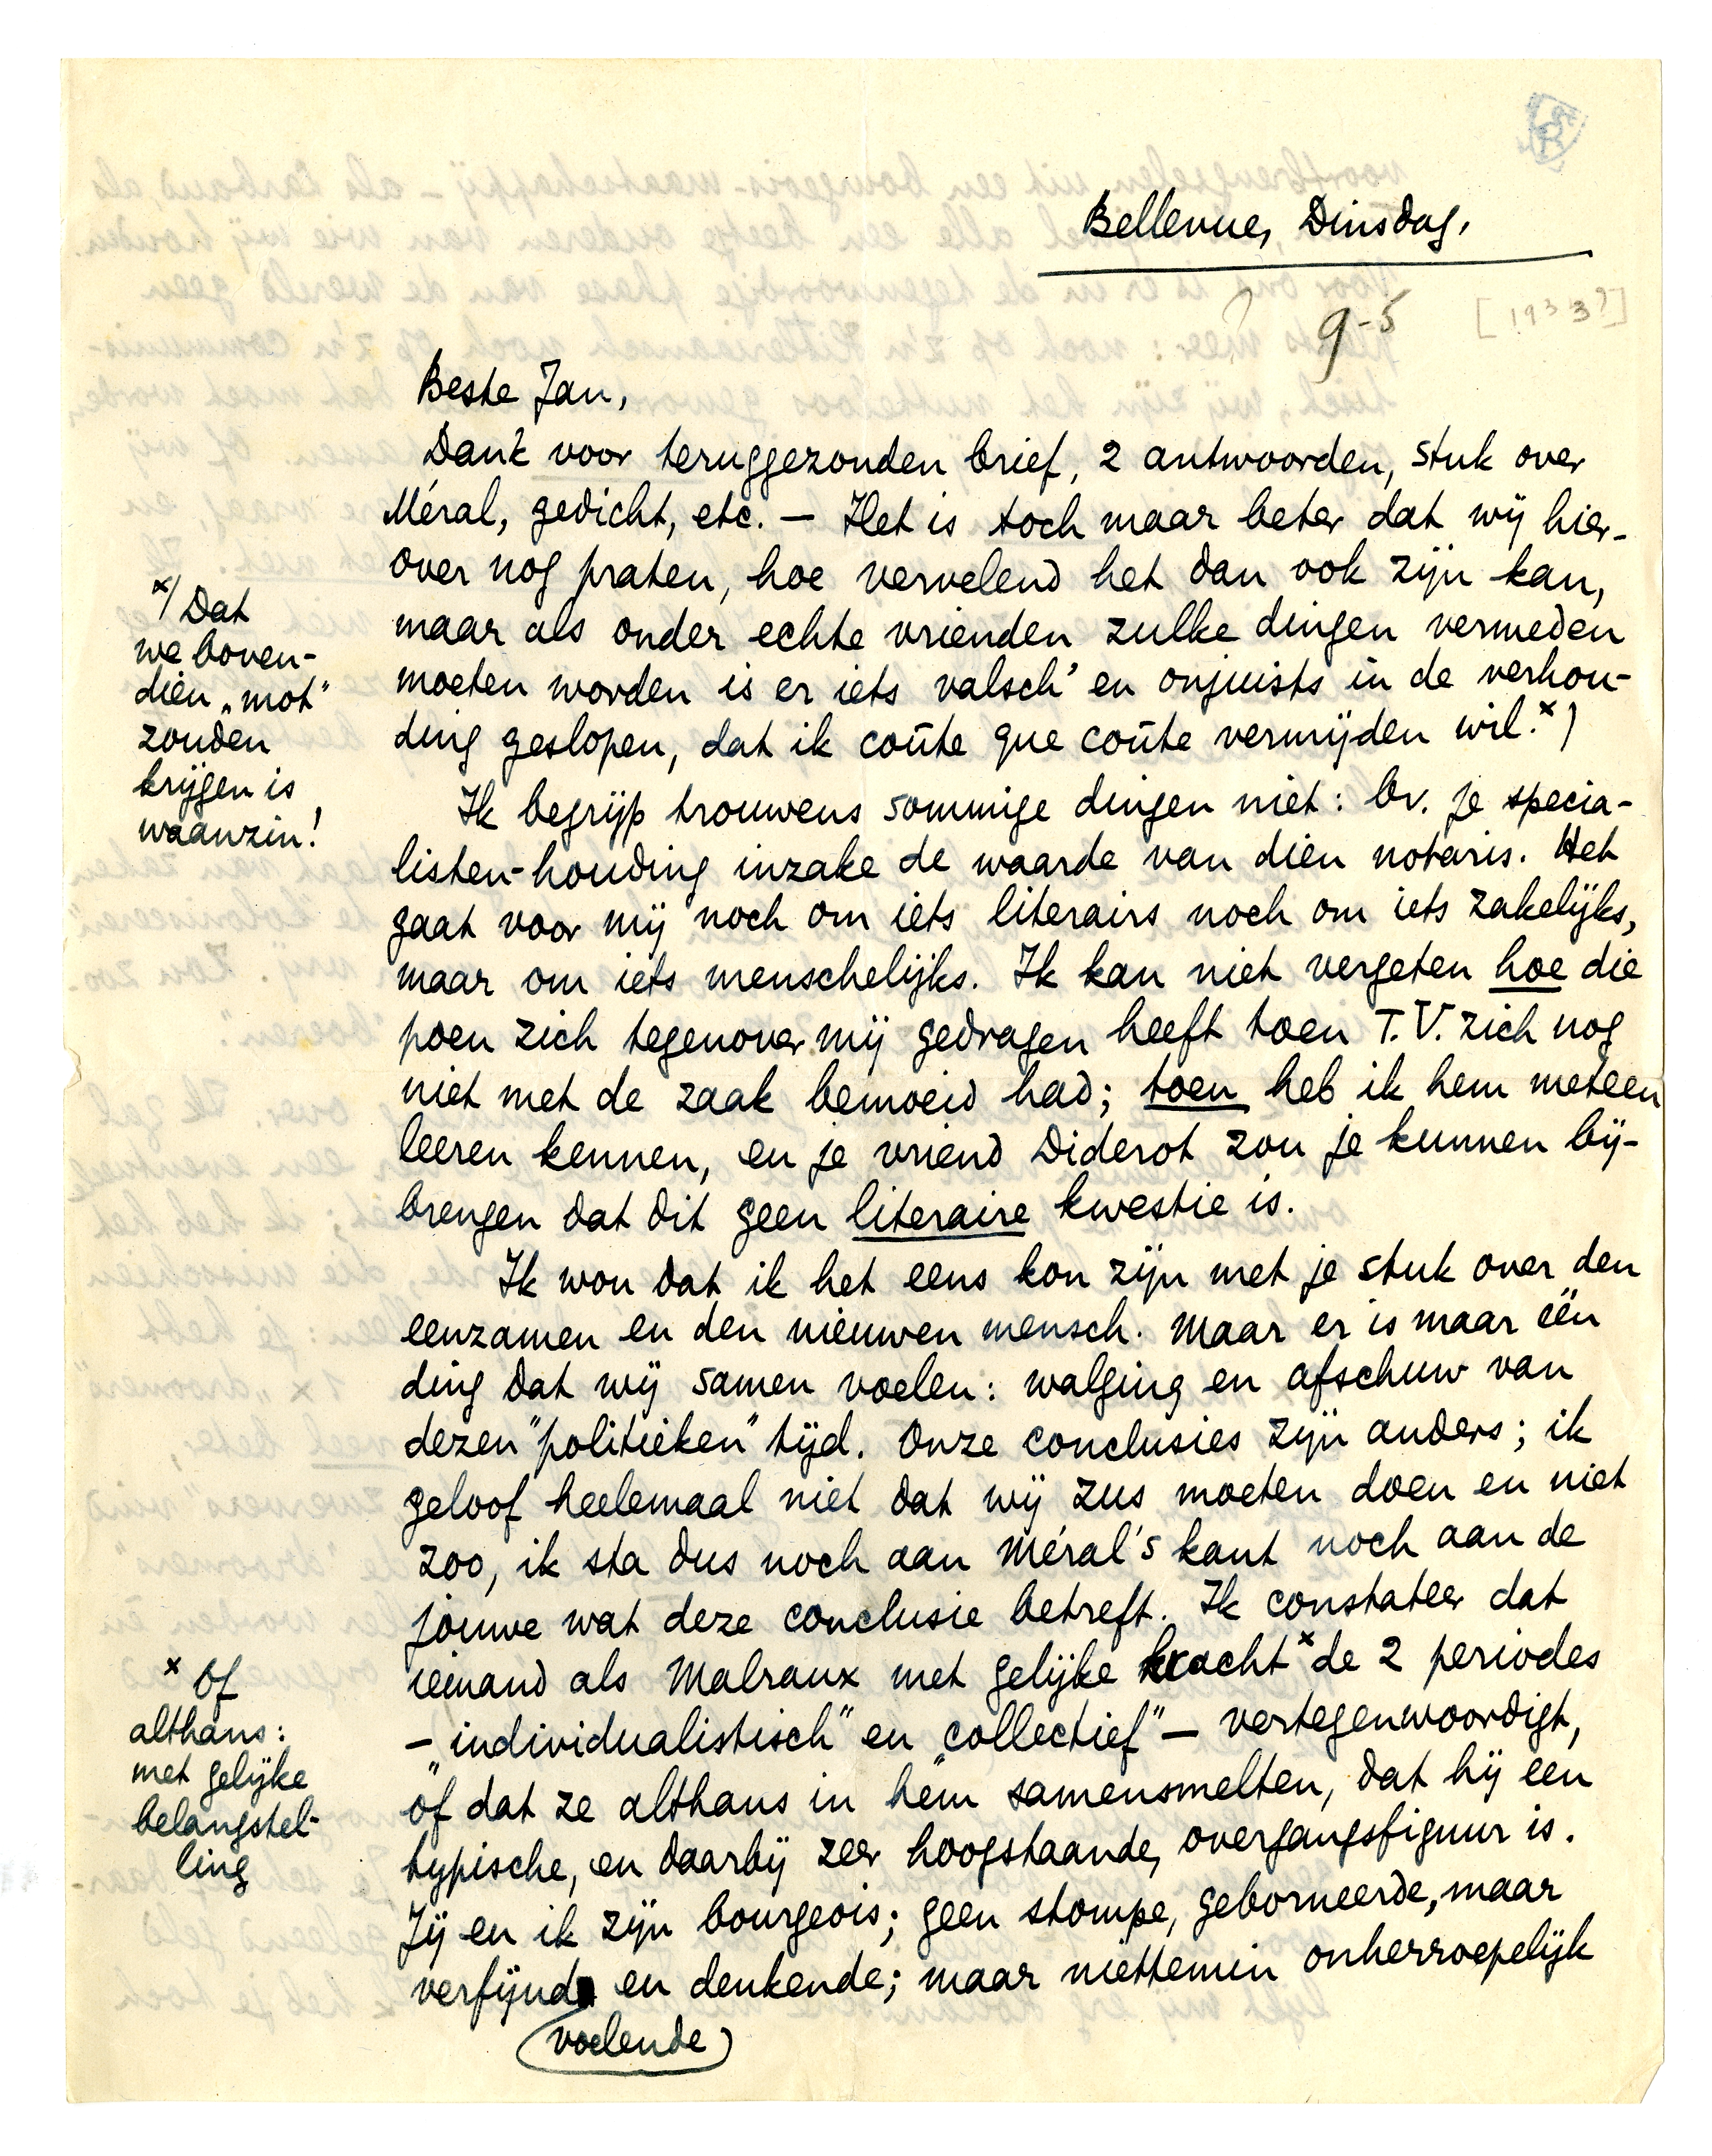 Bellevue, Dinsdag.
? 9-5 [1933?]
Beste Jan,
Dank voor teruggezonden brief, 2 antwoorden, stuk over
Méral, gedicht, etc. — Het is toch maar beter dat wij hier-
over nog praten, hoe vervelend het dan ook zijn kan,
maar als onder echte vrienden zulke dingen vermeden
moeten worden is er iets valsch' en onjuists in de verhou-
ding geslopen, dat ik coûte que coûte vermijden wil.x)
x) Dat
we boven-
dien „mot"
zouden
krijgen is
waanzin!
Ik begrijp trouwens sommige dingen niet: bv. je specia-
listen-houding inzake de waarde van dien notaris. Het
gaat voor mij noch om iets literairs noch om iets zakelijks,
maar om iets menschelijks. Ik kan niet vergeten hoe die
poen zich tegenover mij gedragen heeft toen T.V. zich nog
niet met de zaak bemoeid had; toen heb ik hem meteen
leeren kennen, en je vriend Diderot zou je kunnen bij-
brengen dat dit geen literaire kwestie is.
Ik wou dat ik het eens kon zijn met je stuk over den
eenzamen en den nieuwen mensch. Maar er is maar één
ding dat wij samen voelen: walging en afschuw van
dezen "politieken" tijd. Onze conclusies zijn anders; ik
geloof heelemaal niet dat wij zus moeten doen en niet
zoo, ik sta dus noch aan Méral's kant noch aan de
jouwe wat deze conclusie betreft. Ik constateer dat
iemand als Malraux met gelijke kracht x de 2 periodes
— „individualistisch" en „collectief" — vertegenwoordigt,
òf dat ze althans in hem samensmelten, dat hij een
typische, en daarbij zeer hoogstaande, overgangsfiguur is.
Jij en ik zijn bourgeois; geen stompe, geborneerde, maar
verfijnd en denkende; maar niettemin onherroepelijk
(voelende)
x Of
althans:
met gelijke
belangstel-
ling